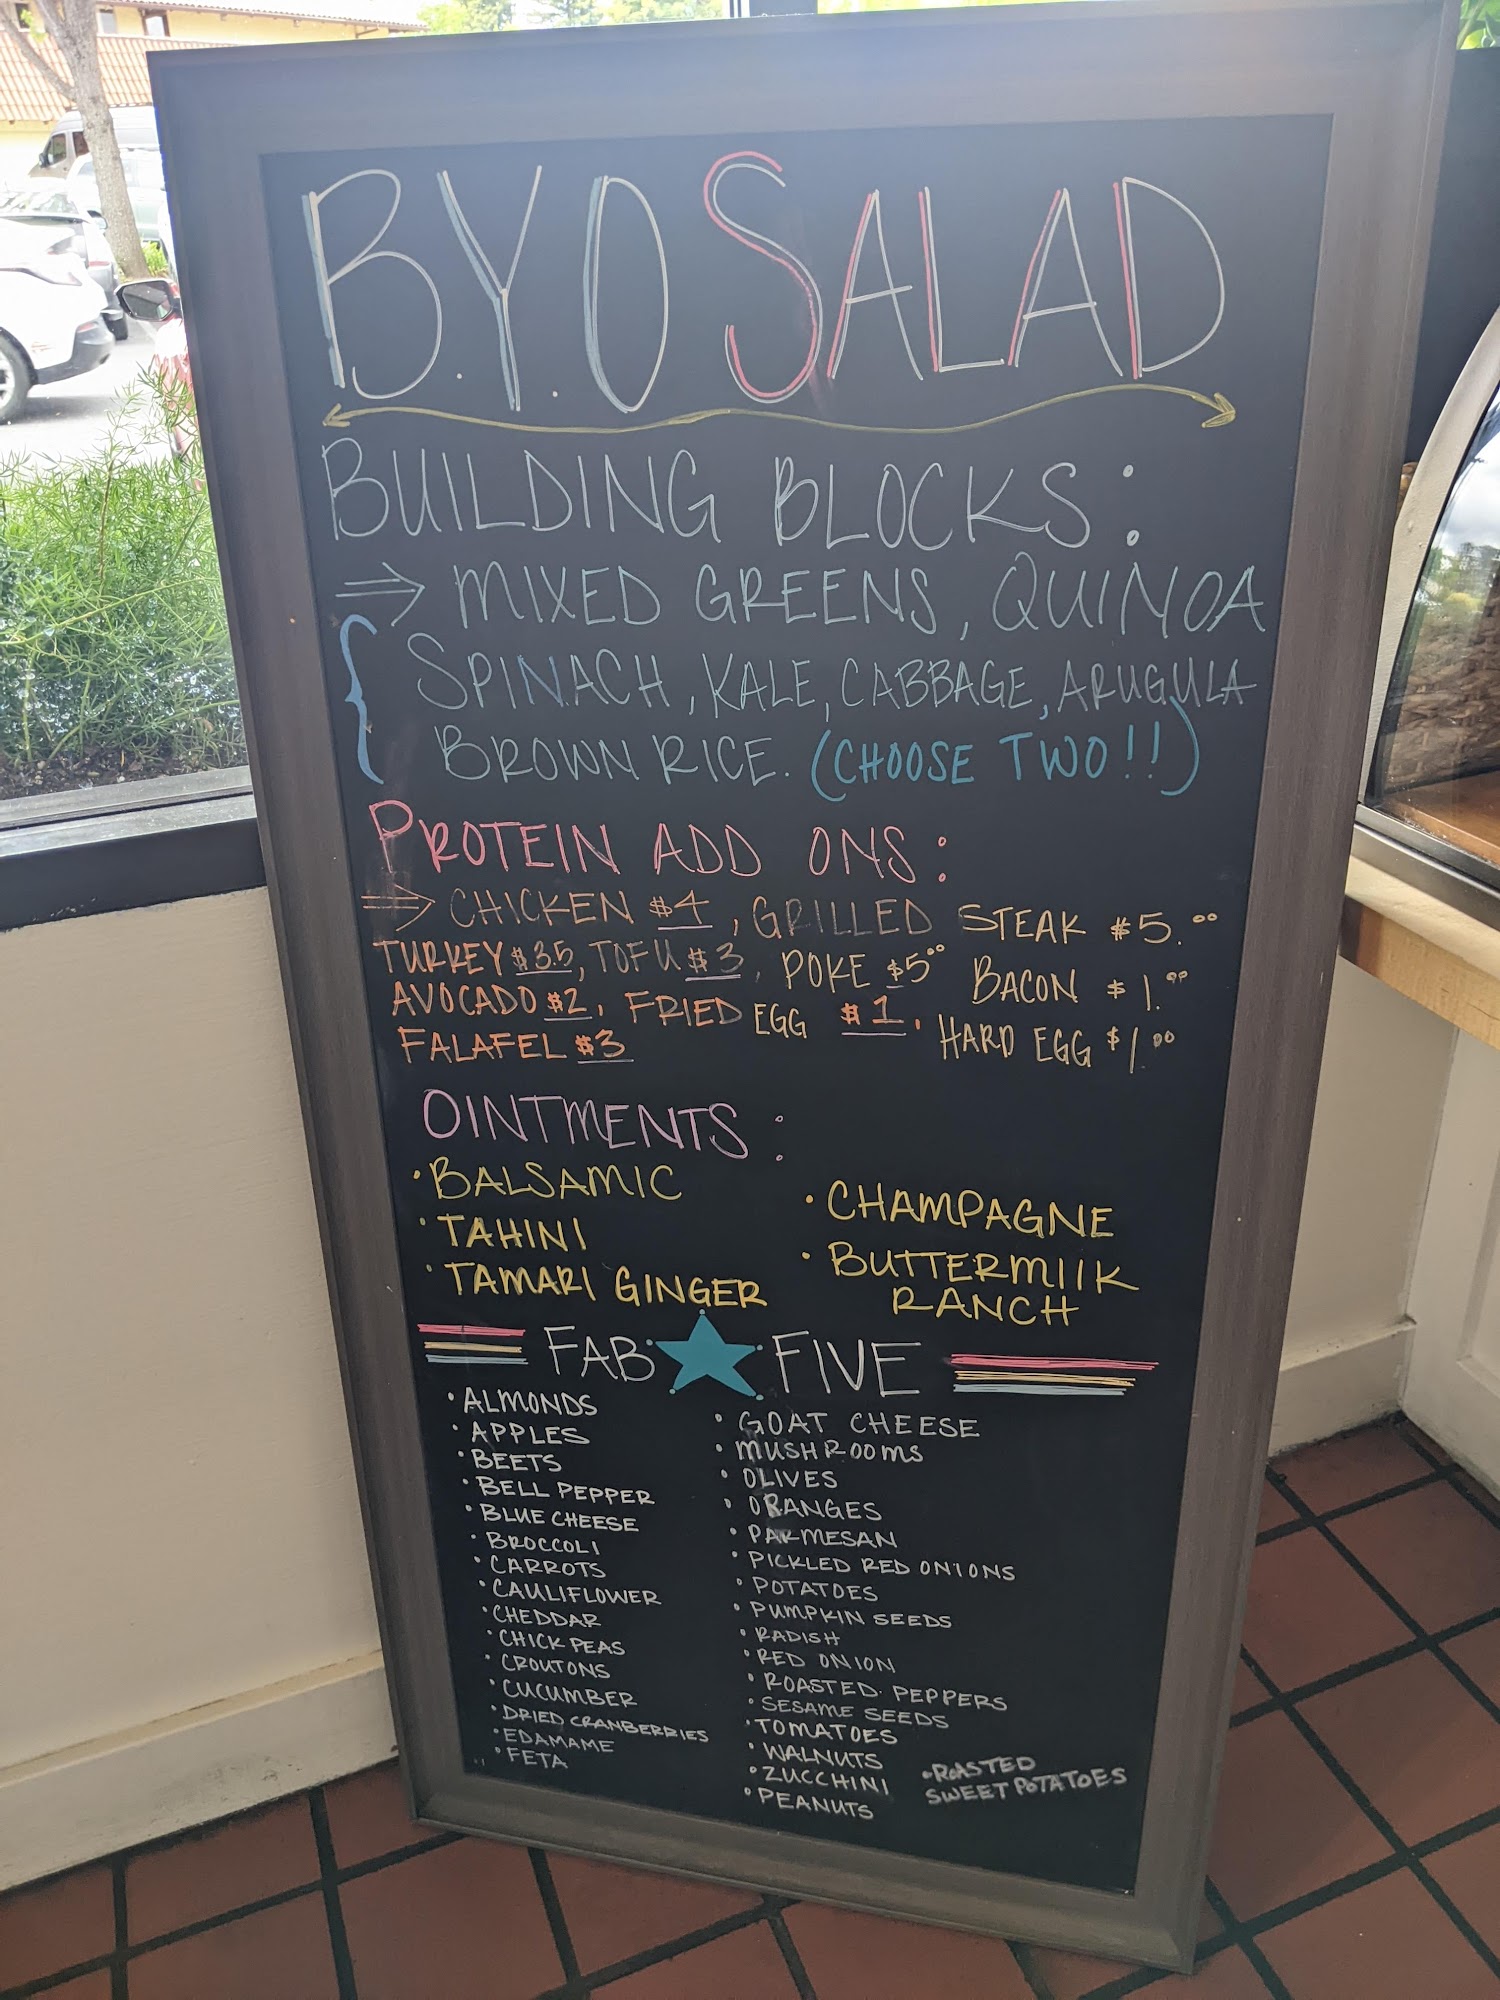 B.Y.O SALAD
BUILDING BLOCKS:
⇒ MIXED GREENS, QUINOA
SPINACH, KALE, CABBAGE, ARUGULA
BROWN RICE. (CHOOSE TWO!!)
PROTEIN ADD ONS:
⇒ CHICKEN $4, GRILLED STEAK $5.00
TURKEY $3.5, TOFU $3, POKE $5.00 BACON $1.00
AVOCADO $2, FRIED EGG $1. HARD EGG $1.00
FALAFEL $3
OINTMENTS:
• BALSAMIC
• TAHINI
• TAMARI GINGER
• CHAMPAGNE
• BUTTERMILK
RANCH
FAB ★ FIVE
• ALMONDS
• APPLES
• BEETS
• BELL PEPPER
• BLUE CHEESE
• BROCCOLI
• CARROTS
• CAULIFLOWER
• CHEDDAR
• CHICK PEAS
• CROUTONS
• CUCUMBER
• DRIED CRANBERRIES
• EDAMAME
• FETA
• GOAT CHEESE
• MUSHROOMS
• OLIVES
• ORANGES
• PARMESAN
• PICKLED RED ONIONS
• POTATOES
• PUMPKIN SEEDS
• RADISH
• RED ONION
• ROASTED PEPPERS
• SESAME SEEDS
• TOMATOES
• WALNUTS
• ZUCCHINI
• PEANUTS
• ROASTED
SWEET POTATOES